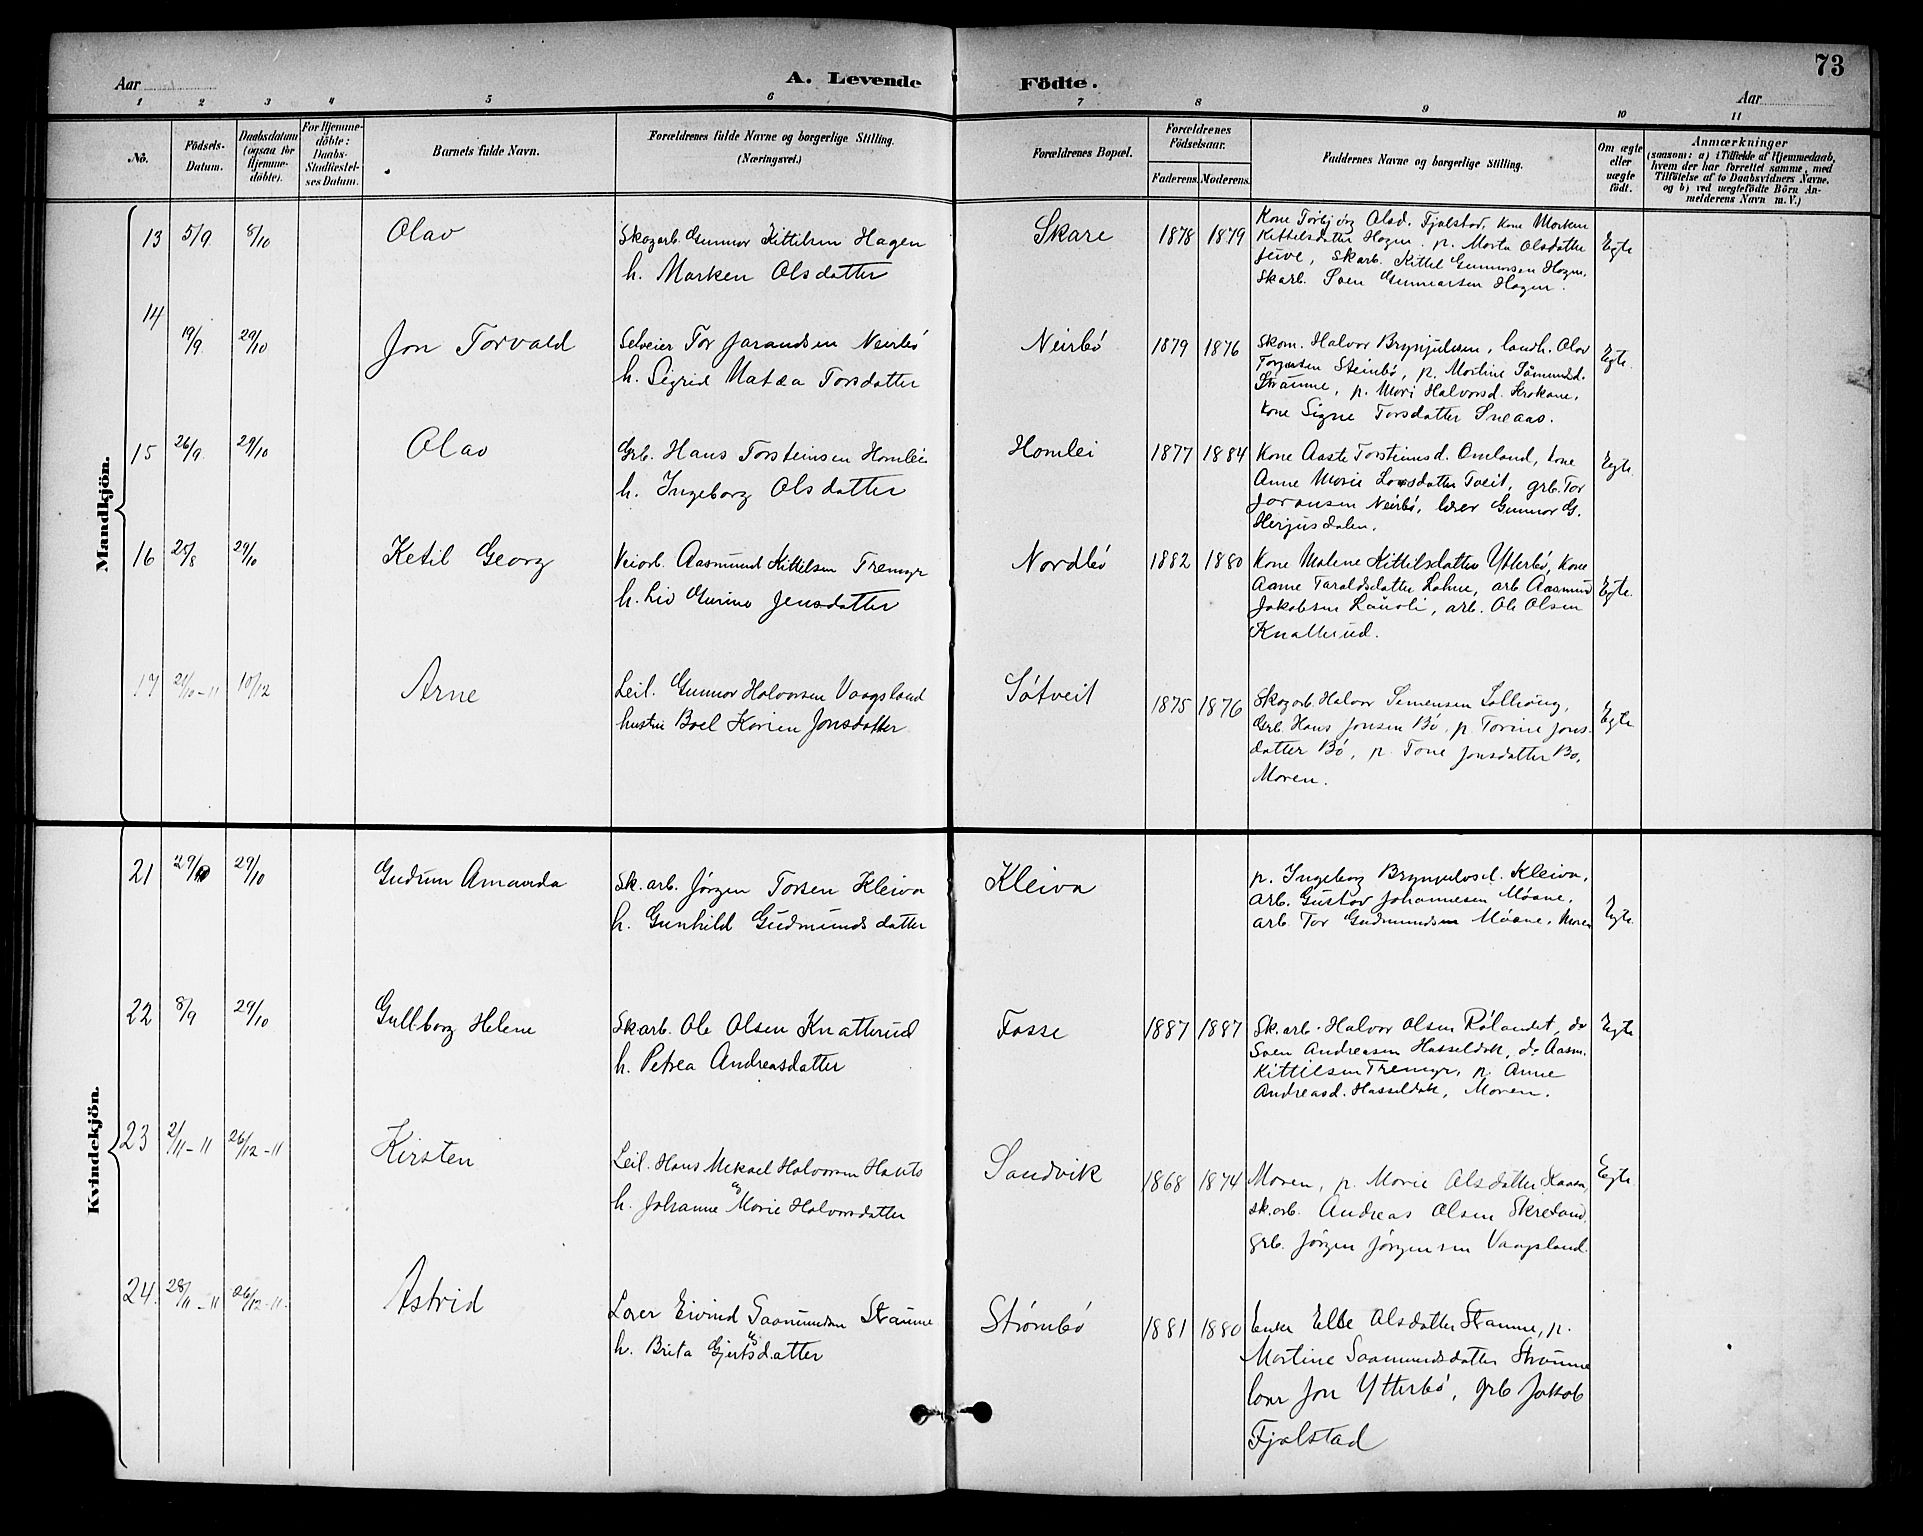 73
Aar
A. Levende Födte.
Aar
1 2 3 4 5 6 7 8 9 10 11
No.
Födsels-Datum.
Daabsdatum (ogsaa for Hjemme-döbte).
For Hjemme-döbte: Daabs-Stadfæstel-ses Datum.
Barnets fulde Navn.
Forældrenes fulde Navne og borgerlige Stilling. (Næringsvei.)
Forældrenes Bopæl.
Forældrenes Födselsaar.
Faderens. Moderens.
Faddernes Navne og borgerlige Stilling.
Om ægte eller uægte födt.
Anmærkninger
(saasom: a) i Tilfælde af Hjemmedaab, hvem der har forrettet samme, med Tilföielse af to Daabsvidners Navne. og b) ved uægtefödte Börn An-melderens Navn m. V.)
Mandkjön.
13 5/9 8/10 Olav
Skogarb. Gunnar Kittilsen Hagen
h. Marken Olsdatter
Skare 1878 1879
Kone Torbjørg Olsd. Fjalstad, kone Marken
Kittilsdatter Hagen. p. Marta Olsdatter
Juve, skarb. Kittil Gunnarsen Hagen,
skarb. Sven Gunnarsen Hagen.
Egte
14 19/9 29/10 Jon Torvald
Selveier Tor Jarandsen Neirbö
h. Sigrid Matea Torsdatter
Neirbö 1879 1876
Skom. Halvor Brynjulvsen, landh. Olav
Torjussen Steinbö, p. Martine Såmundsd.
Straume, p. Mari Halvorsd. Krokane,
kone Signe Torsdatter Sneaas.
Egte.
15 26/9 29/10 Olav
Grb. Hans Torsteinsen Homlei
h. Ingeborg Olsdatter
Homlei 1877 1884
Kone Aaste Torsteinsd. Omland, kone
Anne Marie Larsdatter Tveit, grb. Tor
Jaransen Neirbö, lærer Gunnar G.
Herjusdalen.
Egte.
16 25/8 29/10 Ketil Georg
Veiarb. Aasmund Kittilsen Tremyr
h. Liv Gurine Jensdatter
Nordbö 1882 1880
Kone Malene Kittilsdatter Ytterbö, kone
Anne Taraldsdatter Lahne, arb Aasmund
Jakobsen Lauvli, arb. Ole Olsen
Knatterud.
Egte.
17 21/10-11 10/12 Arne
Leil. Gunnar Halvorsen Vaagsland
hustru Boel Karine Jonsdatter
Søtveit 1875 1876
Skogarb. Halvor Simensen Solhaug,
Grb. Hans Jonsen Bö, p. Torine Jons-
datter Bö, p. Tone Jonsdatter Bö,
Moren.
Egte
Kvindekjön.
21 29/10 Gudrun Amanda
Sk.arb. Jørgen Torsen Kleiva
h. Gunhild Gudmundsdatter
Kleiva
p. Ingeborg Brynjulvsd. Kleiva,
arb. Gustav Johannesen Möane,
arb. Tor Gudmundsen Möane, Moren
Egte.
22 8/9 29/10 Gullborg Helene
Skarb. Ole Olsen Knatterud
h. Petrea Andreasdatter
Fosse 1887 1887
Sk.arb. Halvor Olsen Rölandet, do
Sven Andreassen Hasseldak, do Aasm.
Kittilsen Tremyr, p. Anne
Andreasd. Hasseldak, Moren.
Egte
23 2/11-11 26/12-11 Kirsten
Leil. Hans Mikael Halvorsen Hauts
h. Johanne Marie Halvorsdatter
Sandvik 1868 1874
Moren, p. Marie Olsdatter Kaasa,
sk.arb. Andreas Olsen Skreland,
grb. Jørgen Jørgensen Vaagsland.
Egte.
24. 28/11-11 26/12-11 Astrid
Lærer Eivind Saamundsen Straume
h. Brita Gjertsdatter
Strømbö 1881 1880
Enke Elbe Olsdatter Straume, p.
Martine Saamundsdatter Straume
lærer Jon Ytterbö, grb Jakob
Fjalstad